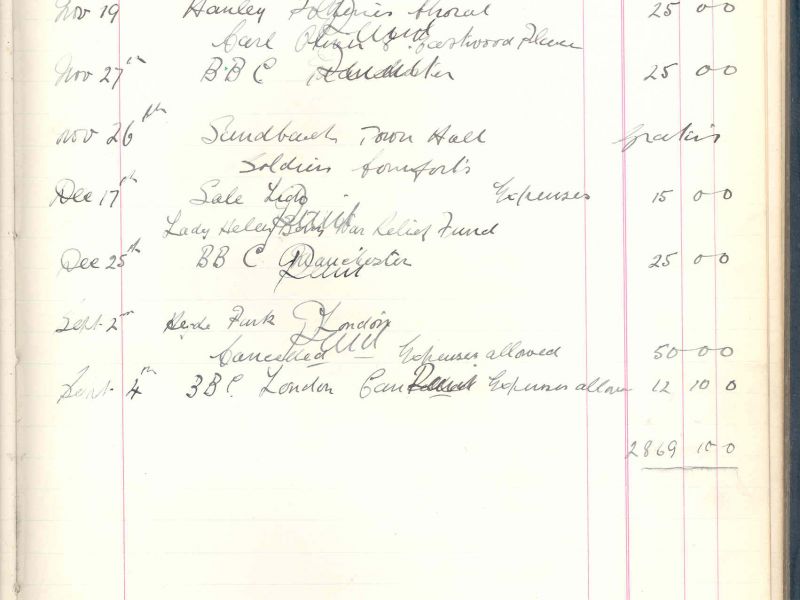 Nov 19 Hanley Choral 25 0 0
Carl Eastwood Place
Nov 27th BBC Manchester 25 0 0
Paid
Nov 26th Sandbach Town Hall Gratis
Soldiers Comforts
Dec 17th Sale Lido Expenses 15 0 0
Paid
Lady Helen War Relief Fund
Dec 25th BBC Manchester 25 0 0
Paid
Sept 2nd Hyde Park London
Paid
Cancelled Expenses allowed 50 0 0
Sept 4th BBC London Paid Expenses allow 12 10 0
2869 10 0